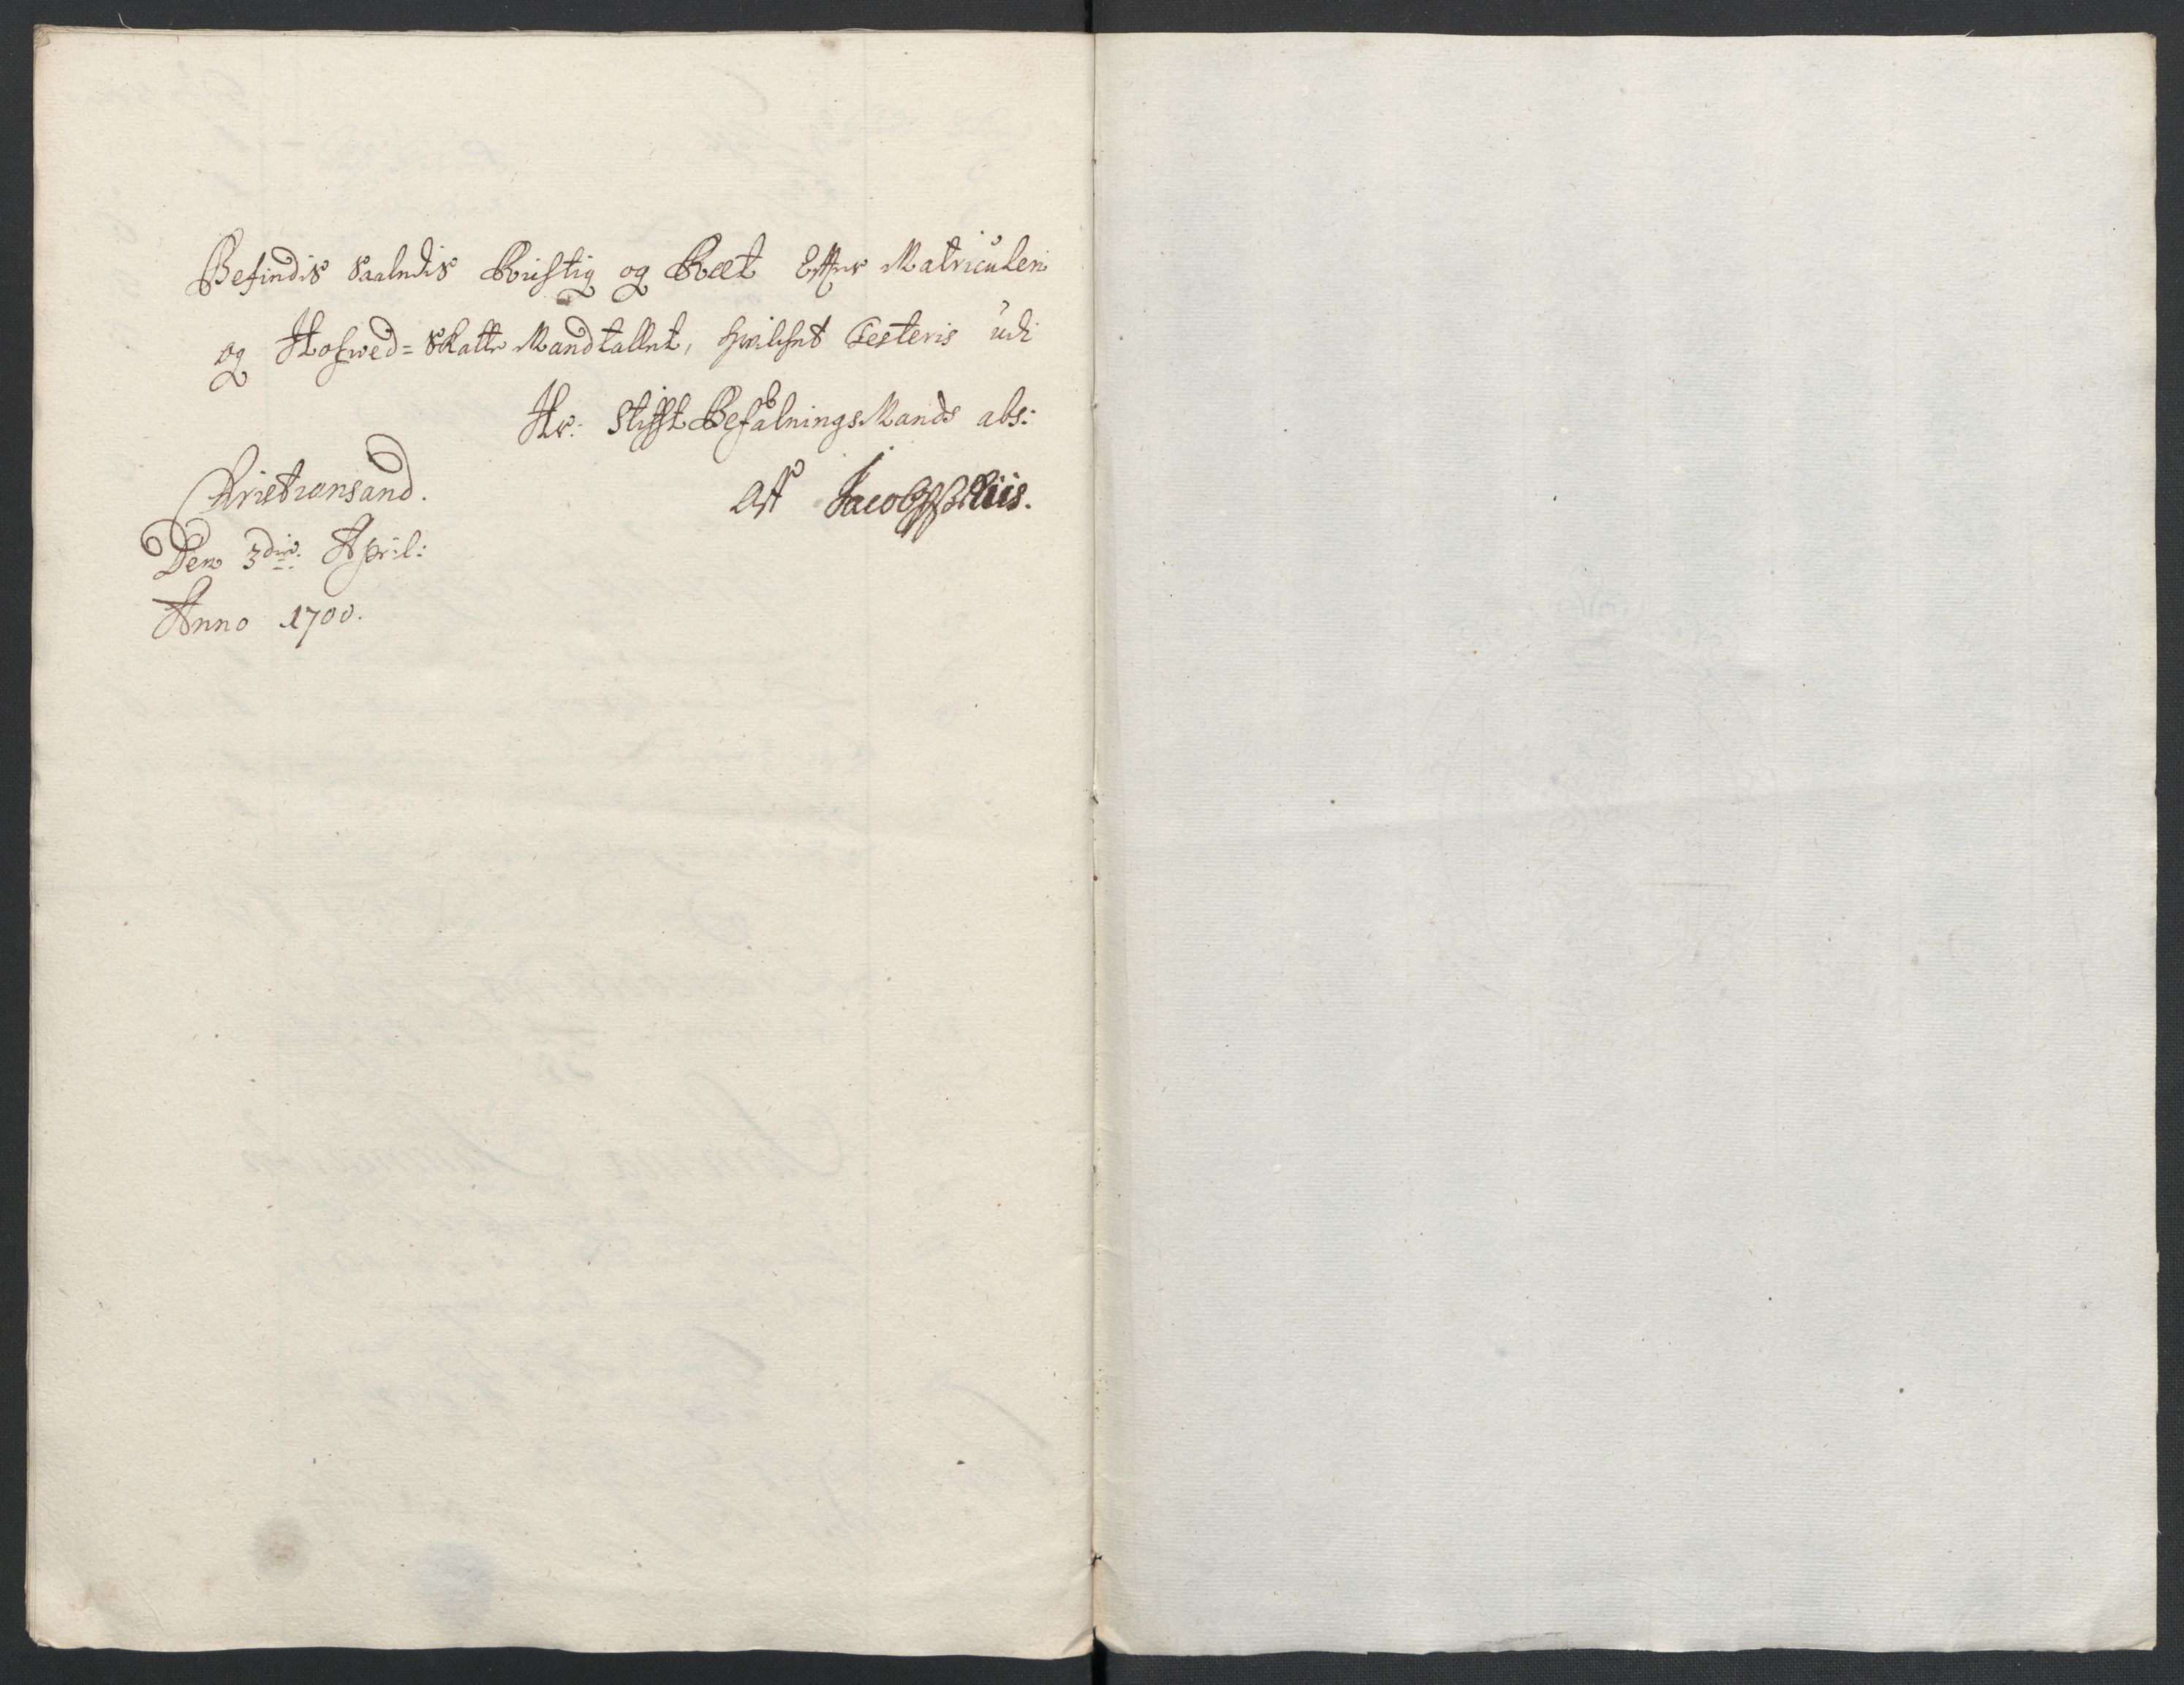 Befindis Saaledis Rigtig og Ræt Effter Matriculen
og Hofwed=Skatte Mandtallet, hvilchet Testeris udi
Hr: Stifft BefalningsMands abs:
Christiansand.
Den 3die April:
Anno 1700.